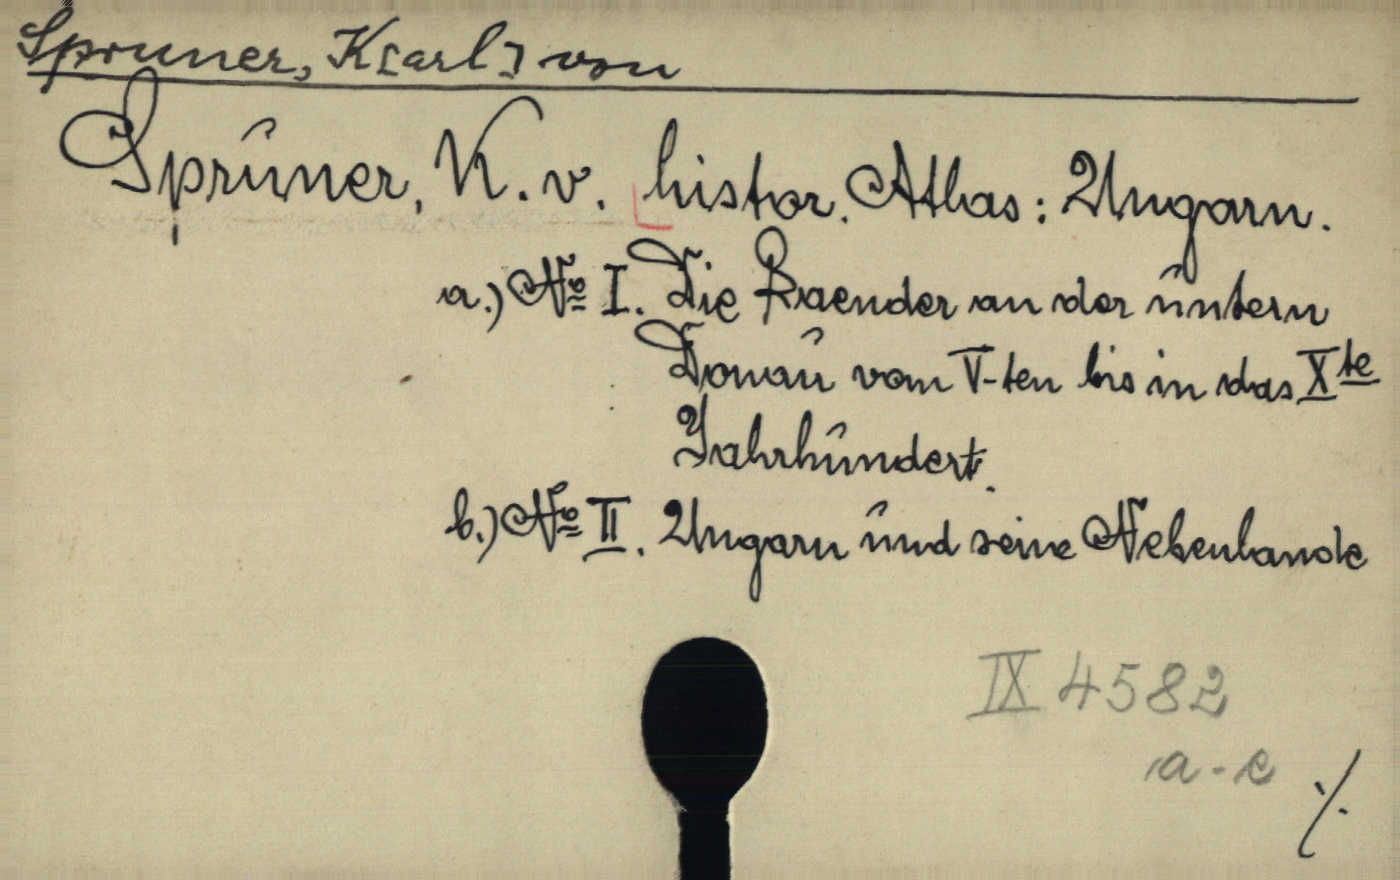 Spruner, K[arl] von
Spruner, K. v. histor. Atlas: Ungarn.
a.) No I. Die Raender an der untern
Donau vom V-ten bis in das Xte
Jahrhundert.
b.) No II. Ungarn und seine Nebenlande
IX 4582
a-c
./.